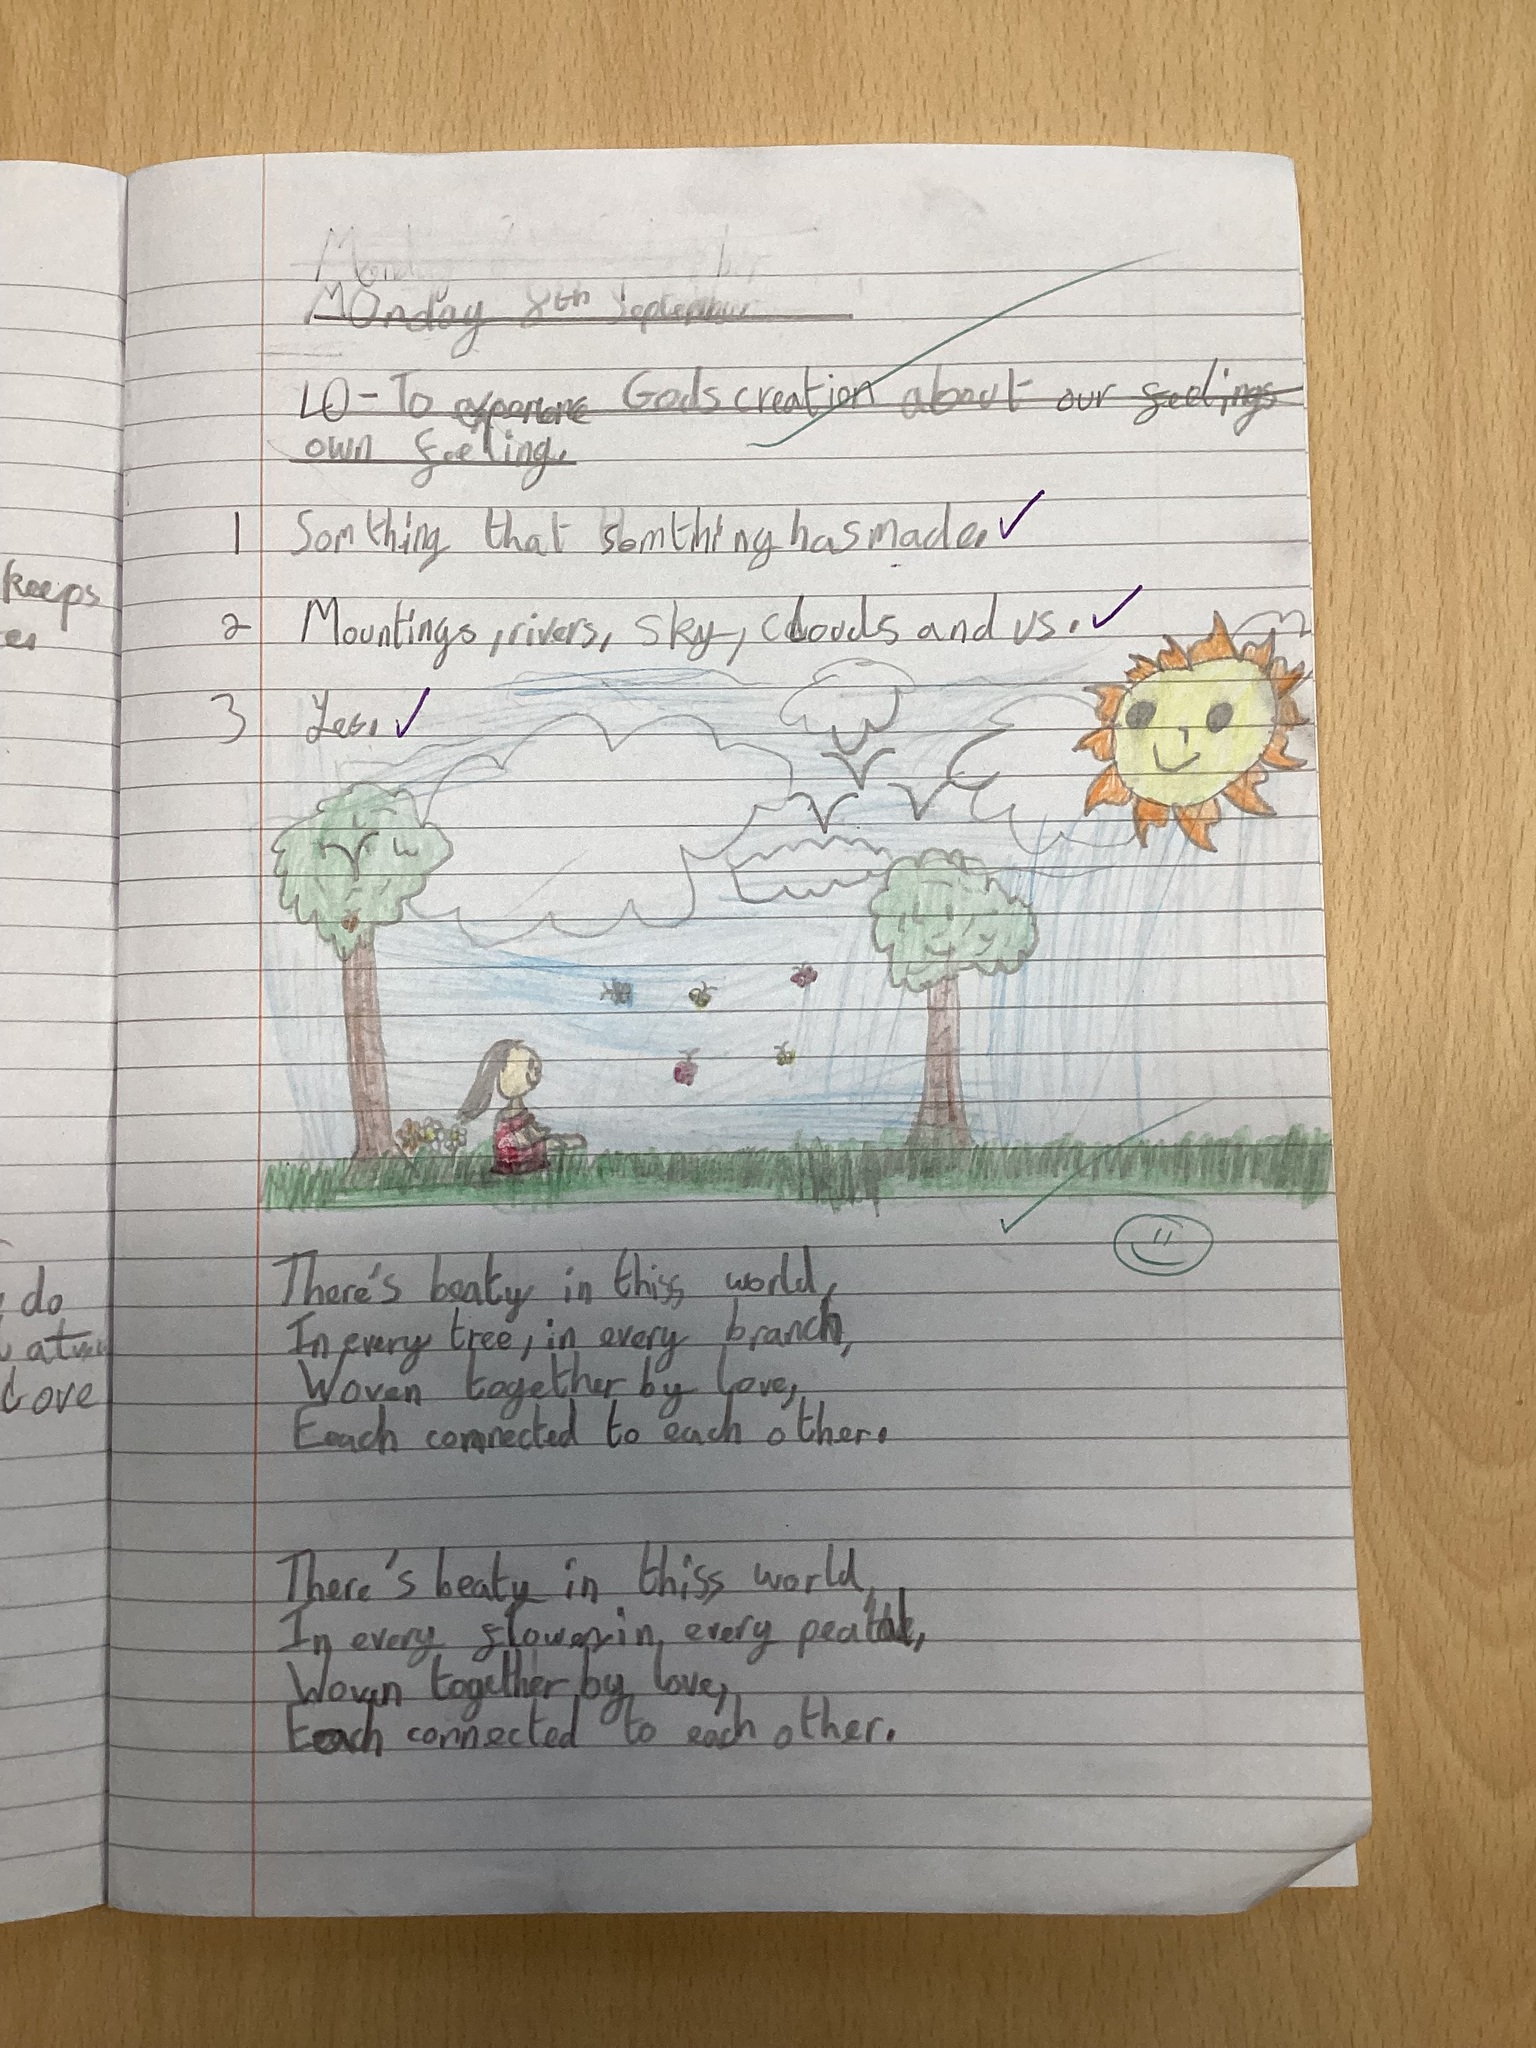 keeps
do
Love
Monday 8th September
LO - To Gods creation about our feelings
own feeling.
1 Somthing that somthing has made.
2 Mountings, rivers, sky, clouds and us.
3 Yes.
There's beaty in thiss world,
In every tree, in every branch,
Woven together by love,
Each connected to each other.
There's beaty in thiss world,
In every flower, in every
Woven together by love,
Each connected to each other.